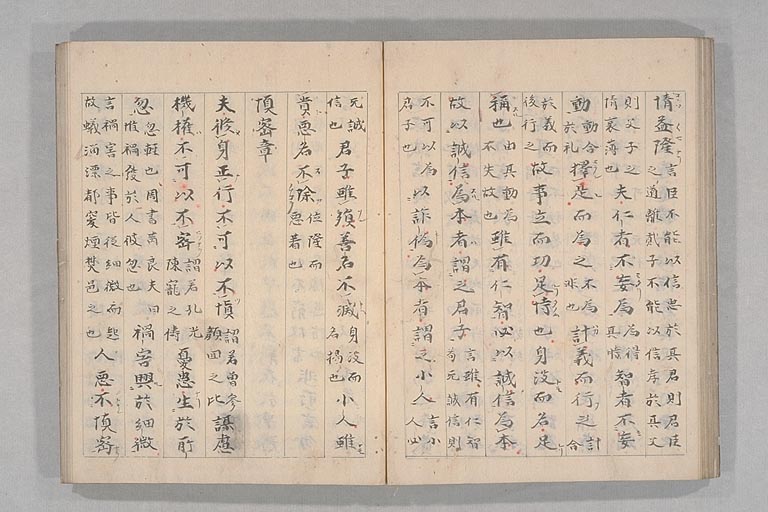 情益隆言臣不能以信忠於其君則君臣之道離貳子不能以信孝於其父
則父子之情衰薄也夫仁者不妄為為得其情智者不妄
動動合於礼擇是而為之不為非也計義而行之計合
於義而後行之故事立而功足恃也身没而名足
稱也由其動為不失故也雖有仁智必以誠信為本
故以誠信為本者謂之君子言雖有仁智苟元誠信則
不可以為君子也以詐偽為本者謂之小人言小人必
元誠信也君子雖殞善名不滅身没而名揚也小人雖
貴惡名不除位隆而惡著也
慎密章
夫修身正行不可以不慎謂若曾參顔回之比謀慮
機權不可以不密謂若孔光陳寵之儔憂患生於所
忽忽輕也周書芮良夫曰惟禍發於人攸忽也禍害興於細微
言禍害之事皆從細微而起故蟻漏漂都突煙焚邑之也人惡不慎密